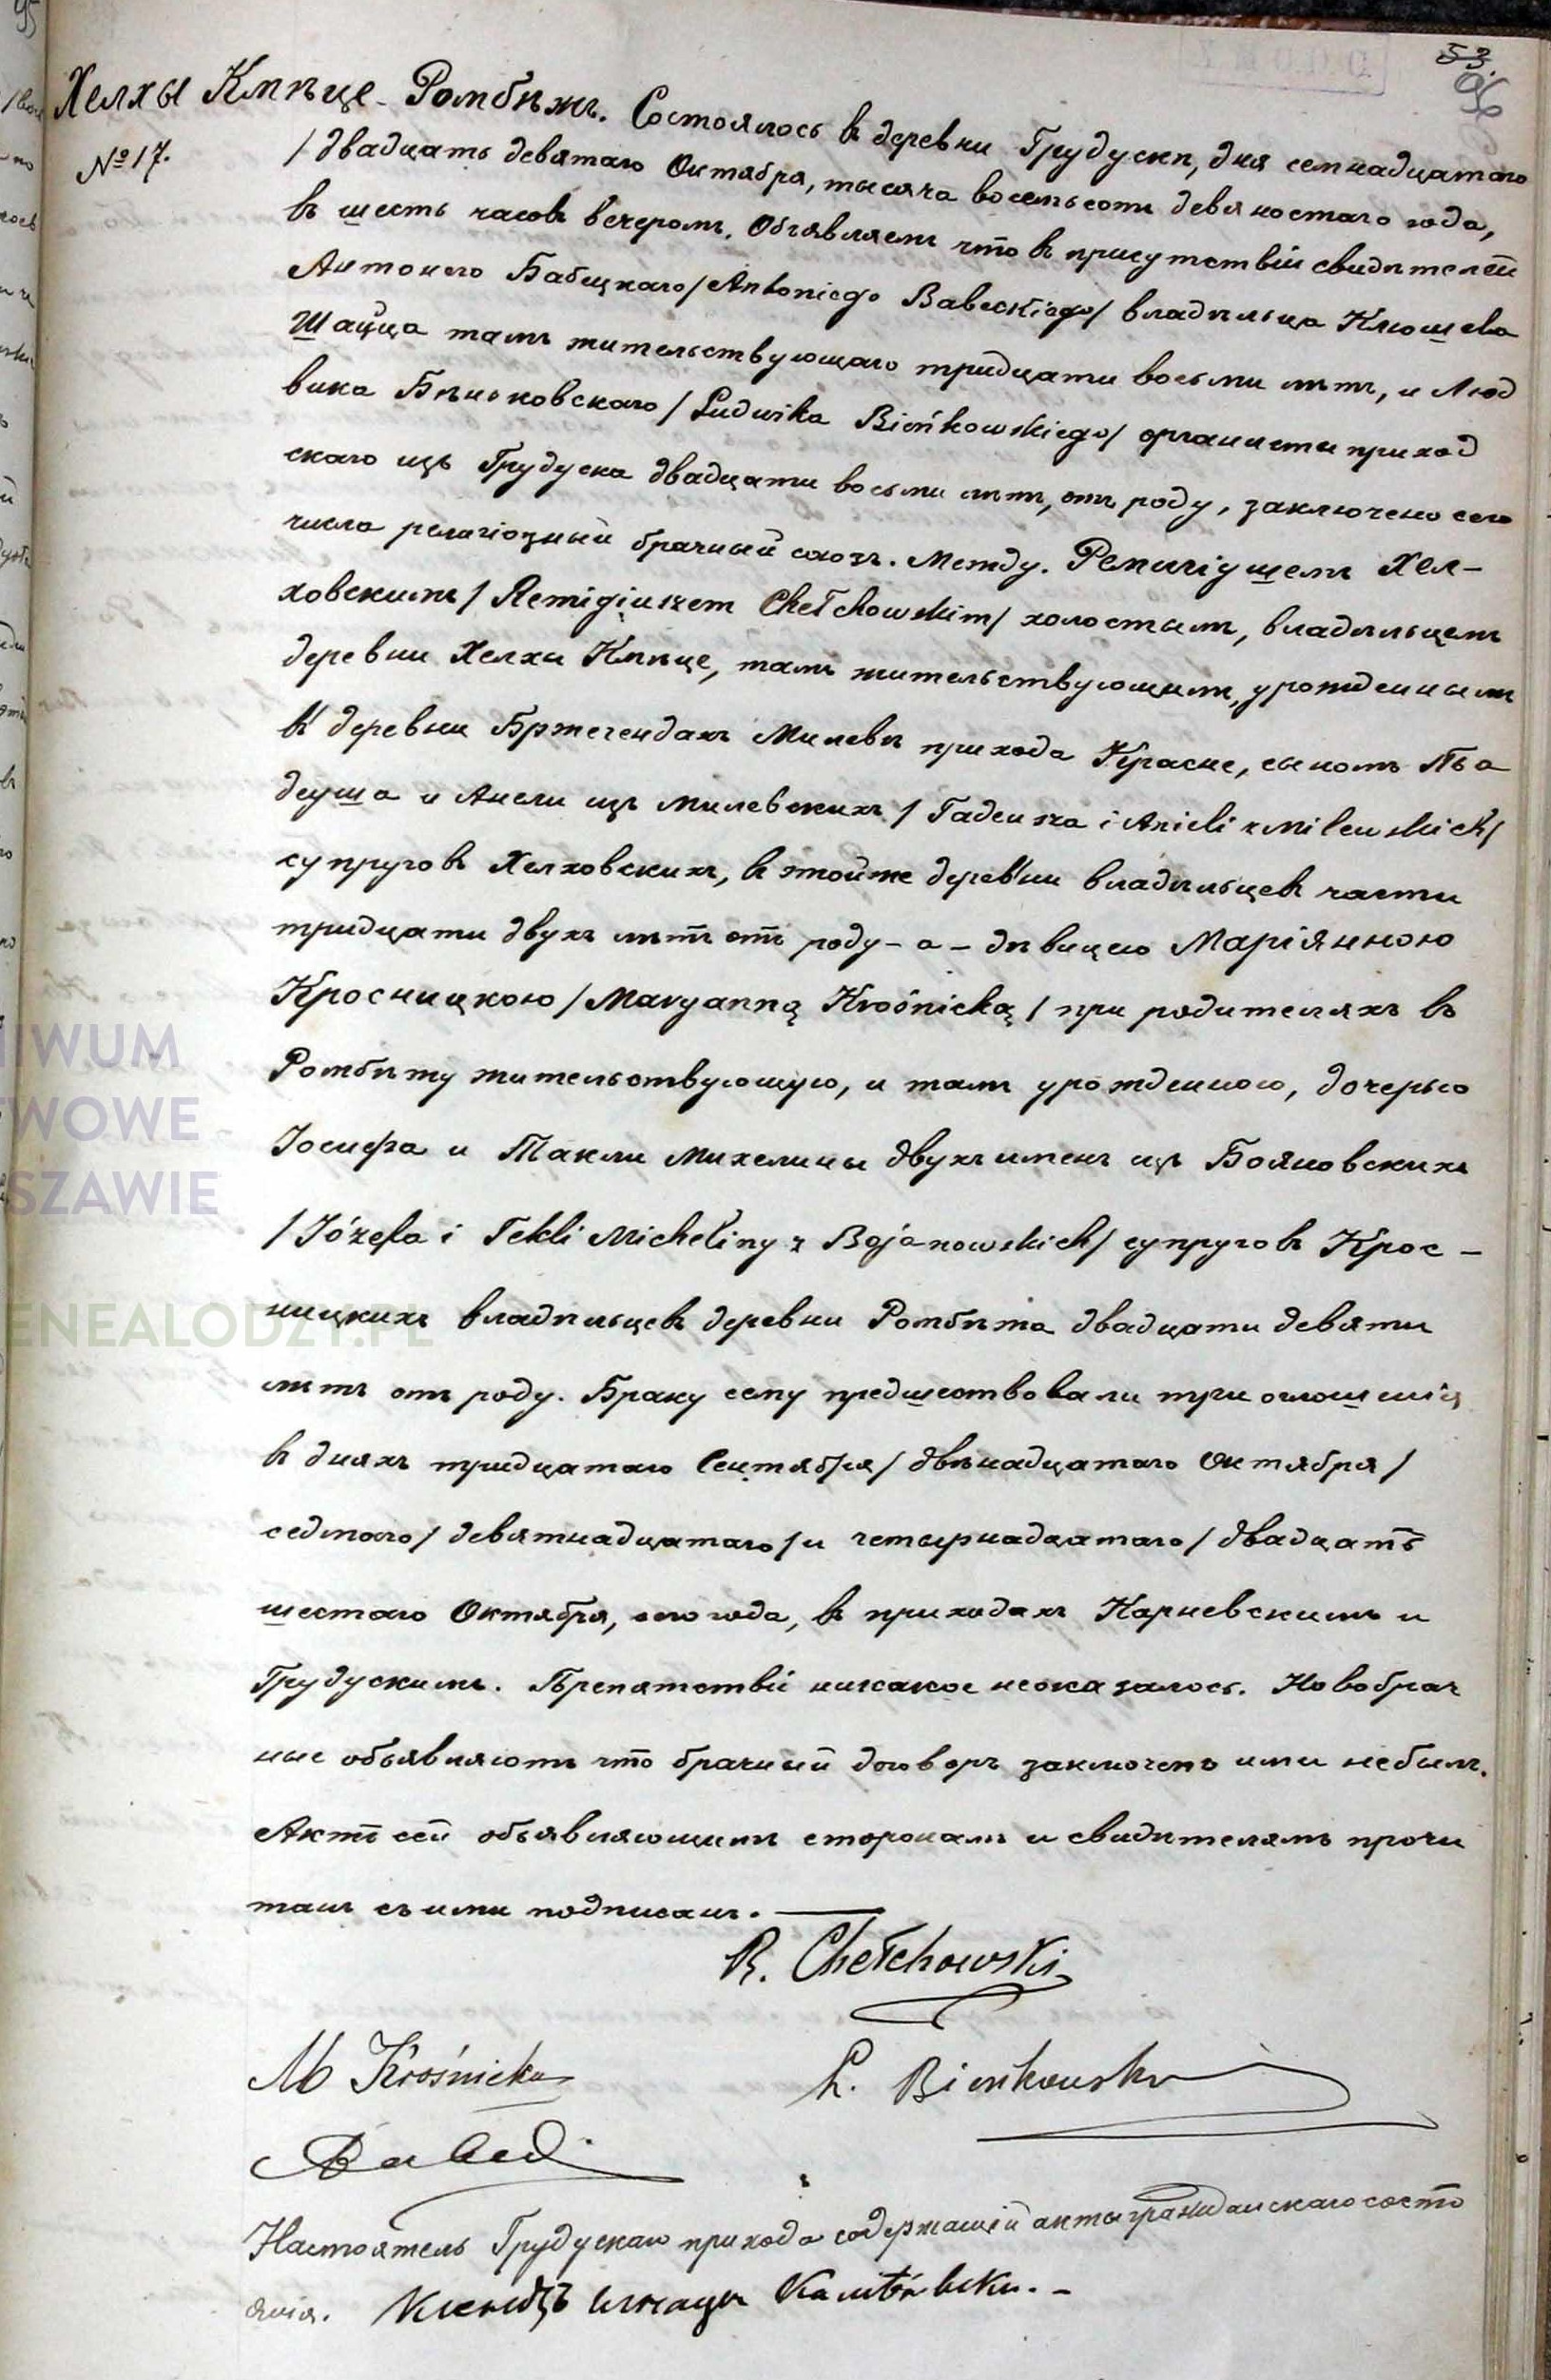 53.
96
Хелхы Кмѣце - Ромбѣжъ. Состоялось въ деревни Грудускѣ, дня семнадцатого
№ 17.
/двадцать девятаго Октября, тысяча восемьсотъ девяностаго года,
въ шесть часовъ вечеромъ. Объявляемъ что въ присутствіи свидѣтелей
Антонего Бабецкаго /Antoniego Babeckiego/ владѣльца Клюшева
тамъ жительствующаго тридцати восьми лѣтъ, и Люд
вика Бѣньковскаго /Ludwika Bieńkowskiego/ органисты приход
скаго изъ Грудуска двадцати восьми лѣтъ, отъ роду, заключено сего
числа религіозный брачный союзъ. Между. Ремигіушемъ Хел-
ховскимъ /Remigiuszem Chełchowskim/ холостымъ, владѣльцемъ
деревни Хелхи Кмѣце, тамъ жительствующимъ, урожденнымъ
въ деревни Бржегендахъ Милевѣ прихода Красне, сыномъ Та
деуша и Анели изъ Милевскихъ /Tadeusza i Anieli z Milewskich/
супруговъ Хелховскихъ, въ тойже деревни владѣльцевъ части
тридцати двухъ лѣтъ отъ роду - а - дѣвицею Маріянною
Кросницкою /Maryanną Krośnicką/ при родителяхъ въ
Ромбѣжу жительствующую, и тамъ урожденною, дочерью
Іосифа и Текли Михелины двухъ именъ изъ Бояновскихъ
/Józefa i Tekli Micheliny z Bojanowskich/ супруговъ Крос-
ницкихъ владѣльцевъ деревни Ромбѣжа двадцати девяти
лѣтъ отъ роду. Браку сему предшествовали три оглошенія
въ дняхъ тридцатаго Сентября /двѣнадцатаго Октября/
седмаго /девятнадцатаго/ и четырнадцатаго /двадцать
шестаго Октября, сего года, въ приходахъ Карневскимъ и
Грудускимъ. Препятствій никакое неоказалось. Новобрач
ные объявляютъ что брачный договоръ заключенъ ими небылъ.
Актъ сей объявляющимъ сторонамъ и свидѣтелямъ прочи
танъ съ ими подписанъ.
R. Chełchowski
M Krośnicka
L. Bieńkowski
Настоятель Грудускаго прихода содержащій акты гражданскаго состо
янія. Ксендзъ Игнацы